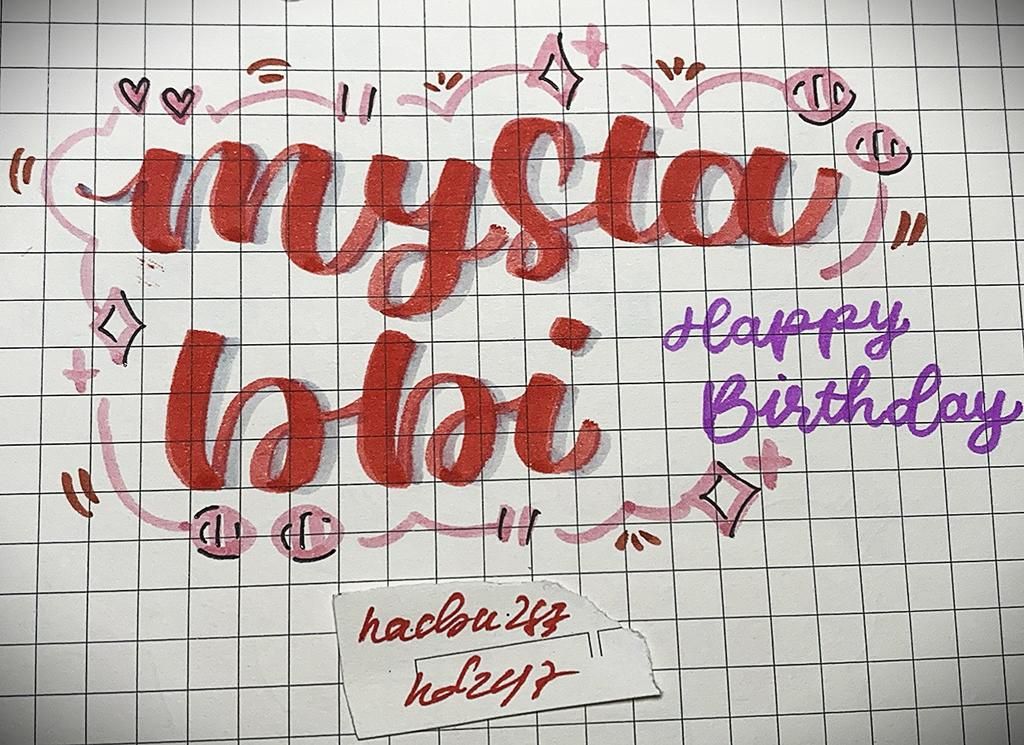 mysta
bbi
Happy
Birthday
hd247